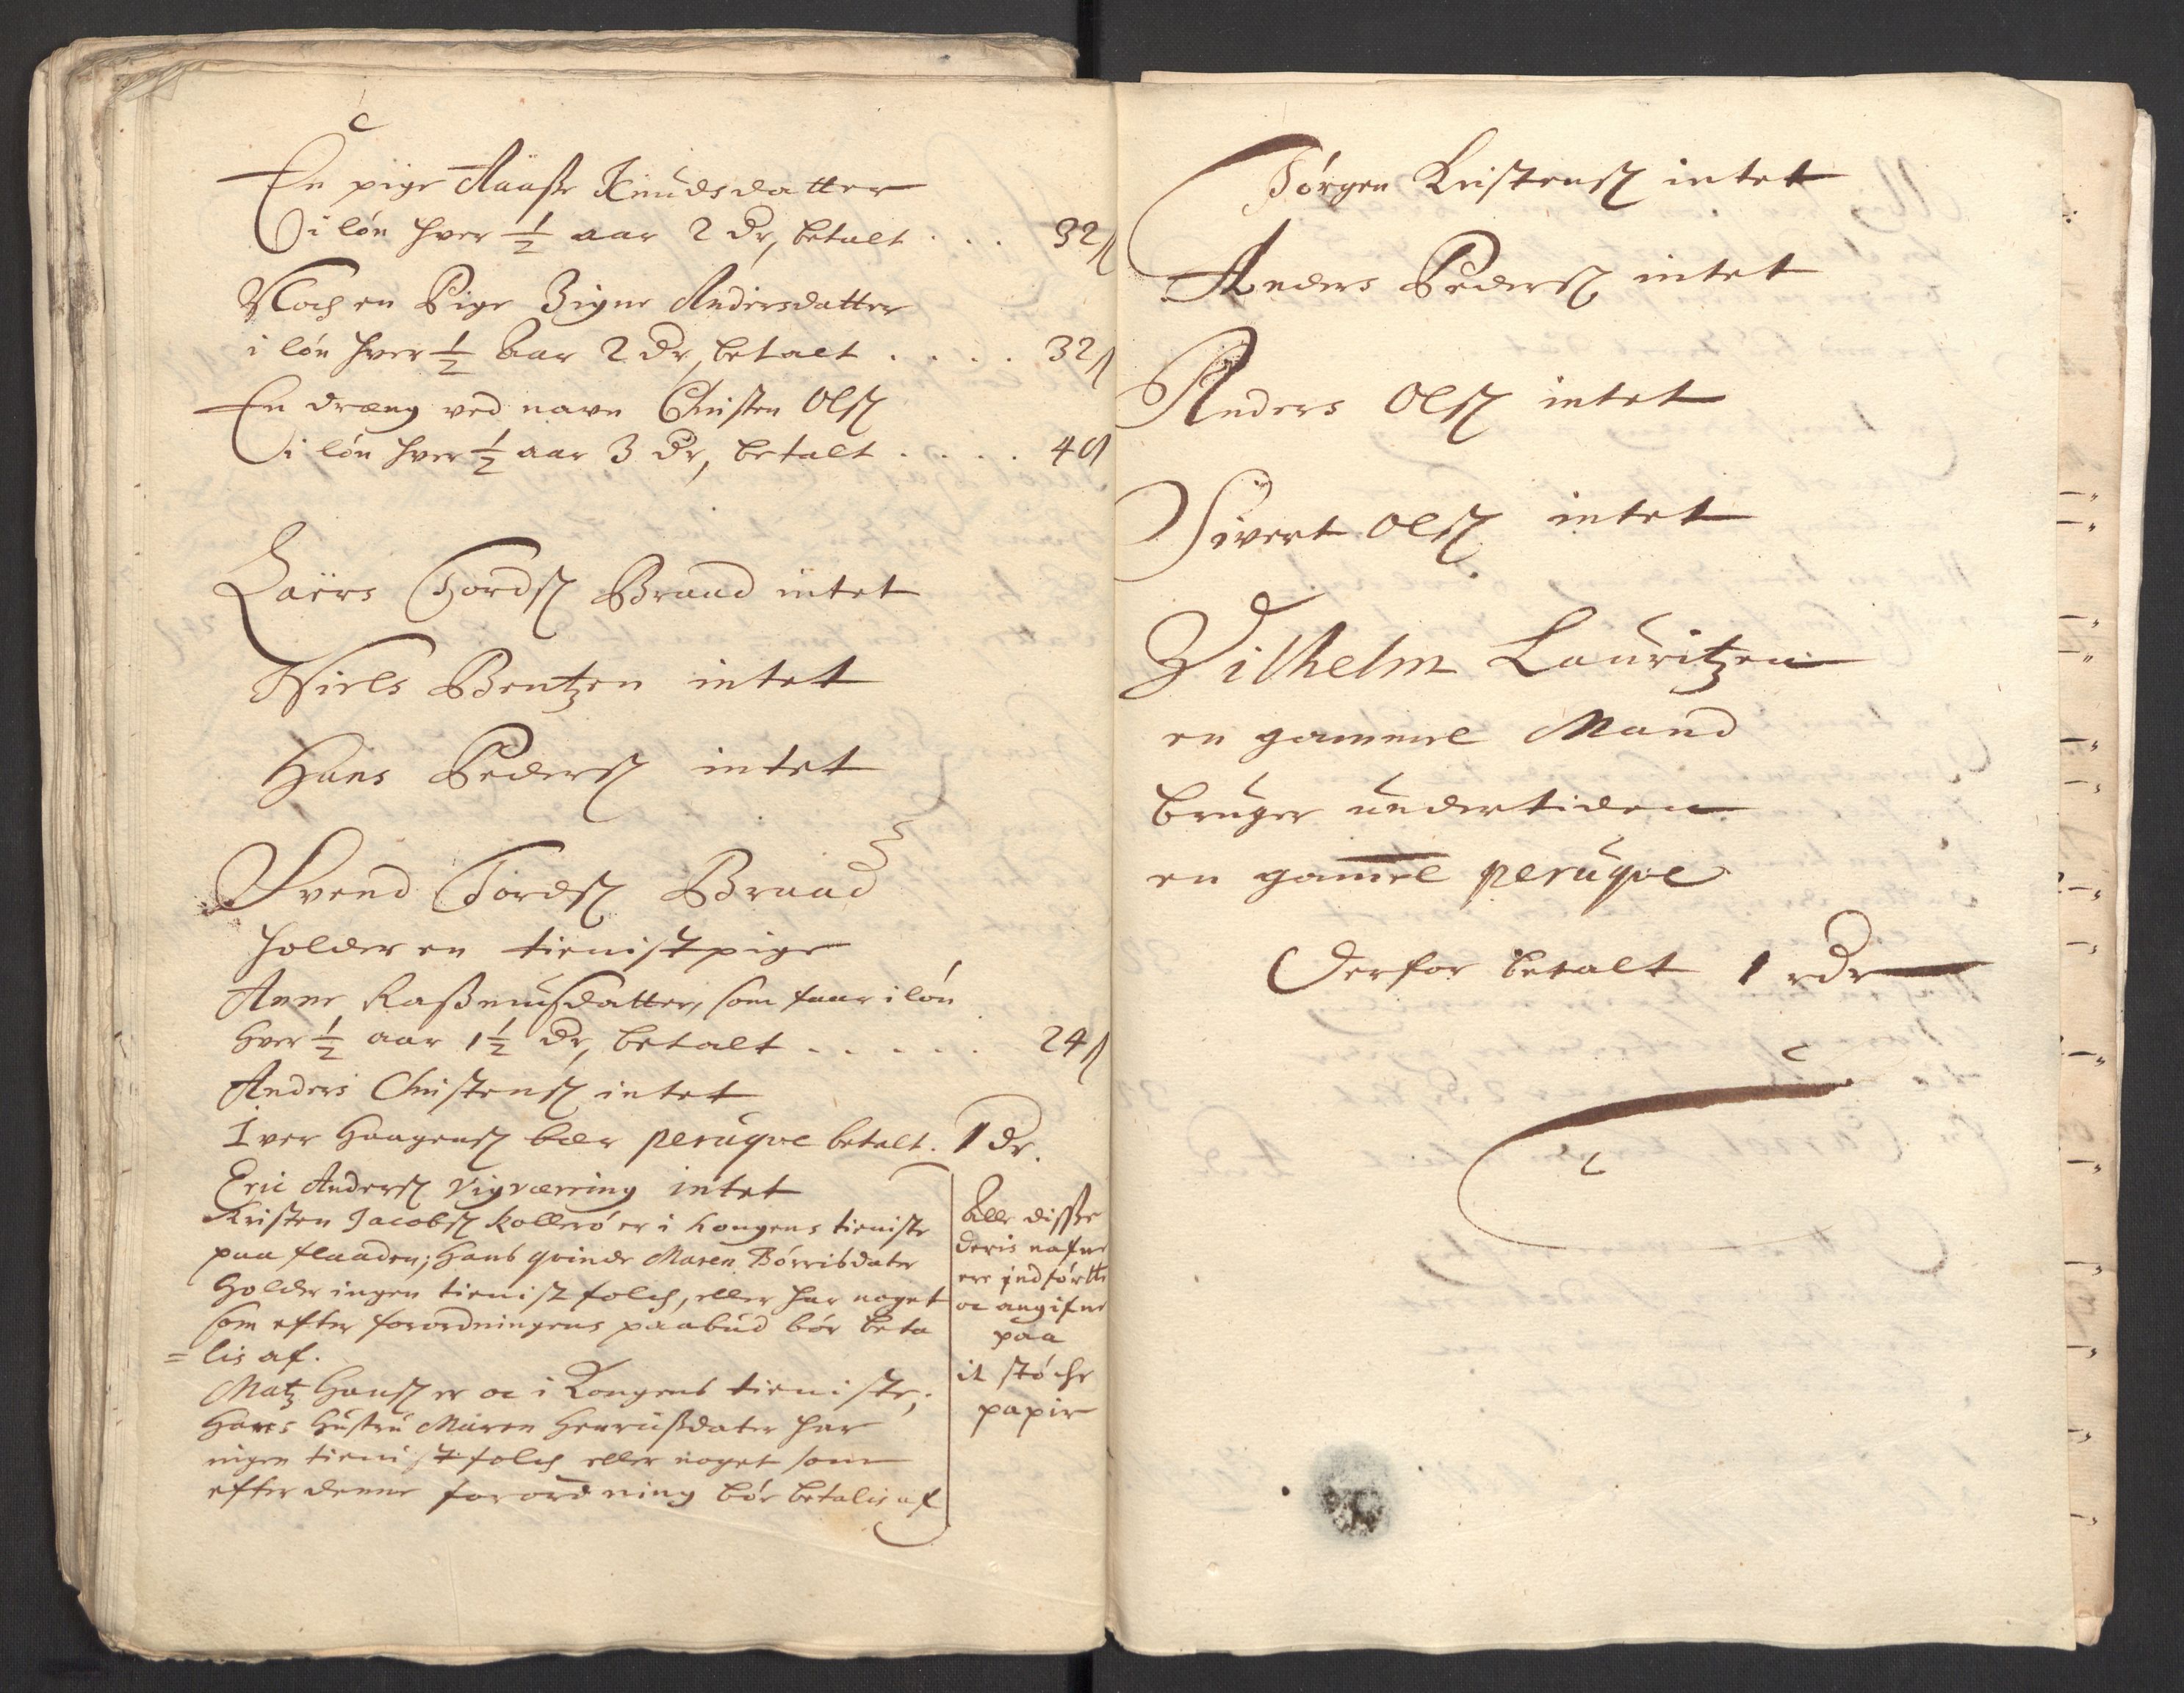 En pige Aaase Knudsdatter
i løn hver ½ aar 2 Dr, betalt . . . 32 ß
Noch en Pige Zigne Andersdatter
i løn hver ½ Aar 2 Dr, betalt . . . . 32 ß
En dræng ved navn Christen Olß
i løn hver ½ aar 3 Dr, betalt . . . . 40 ß
Laers Tordß Braad intet
Niels Bentzen intet
Hans Pederß intet
Svend Tordß Braad
holder en tienistpige
Anne Rasmusdatter, som faar i løn
hver ½ aar 1½ Dr, betalt . . . . . 24 ß
Anders Christenß intet
Iver Haagenß bær peruqve betalt. 1 Dr.
Eric Anderß Vigværring intet
Kristen Jacobß Kollerö er i Kongens tieniste
paa flaaden; Hans qvinde Maren Börrisdater
Holder ingen tienist folch, eller har noget
som efter forordningens paabud bör beta
= lis af.
Matz Hanß er oc i Kongens tieniste;
Hans Hustru Maren Henricksdater har
ingen tienist folch eller noget som
efter denne forordning bör betalis af
Alle disse
deris nafne
ere indförtte
oc angifne
paa
it stöche
papir
Jörgen Kristenß intet
Anders Pederß intet
Anders Olß intet
Sivert Olß intet
Vilhelm Lauritzen
en gammel Mand
bruger undertiden
en gam̅el peruqve
Derfor betalt 1 rdr